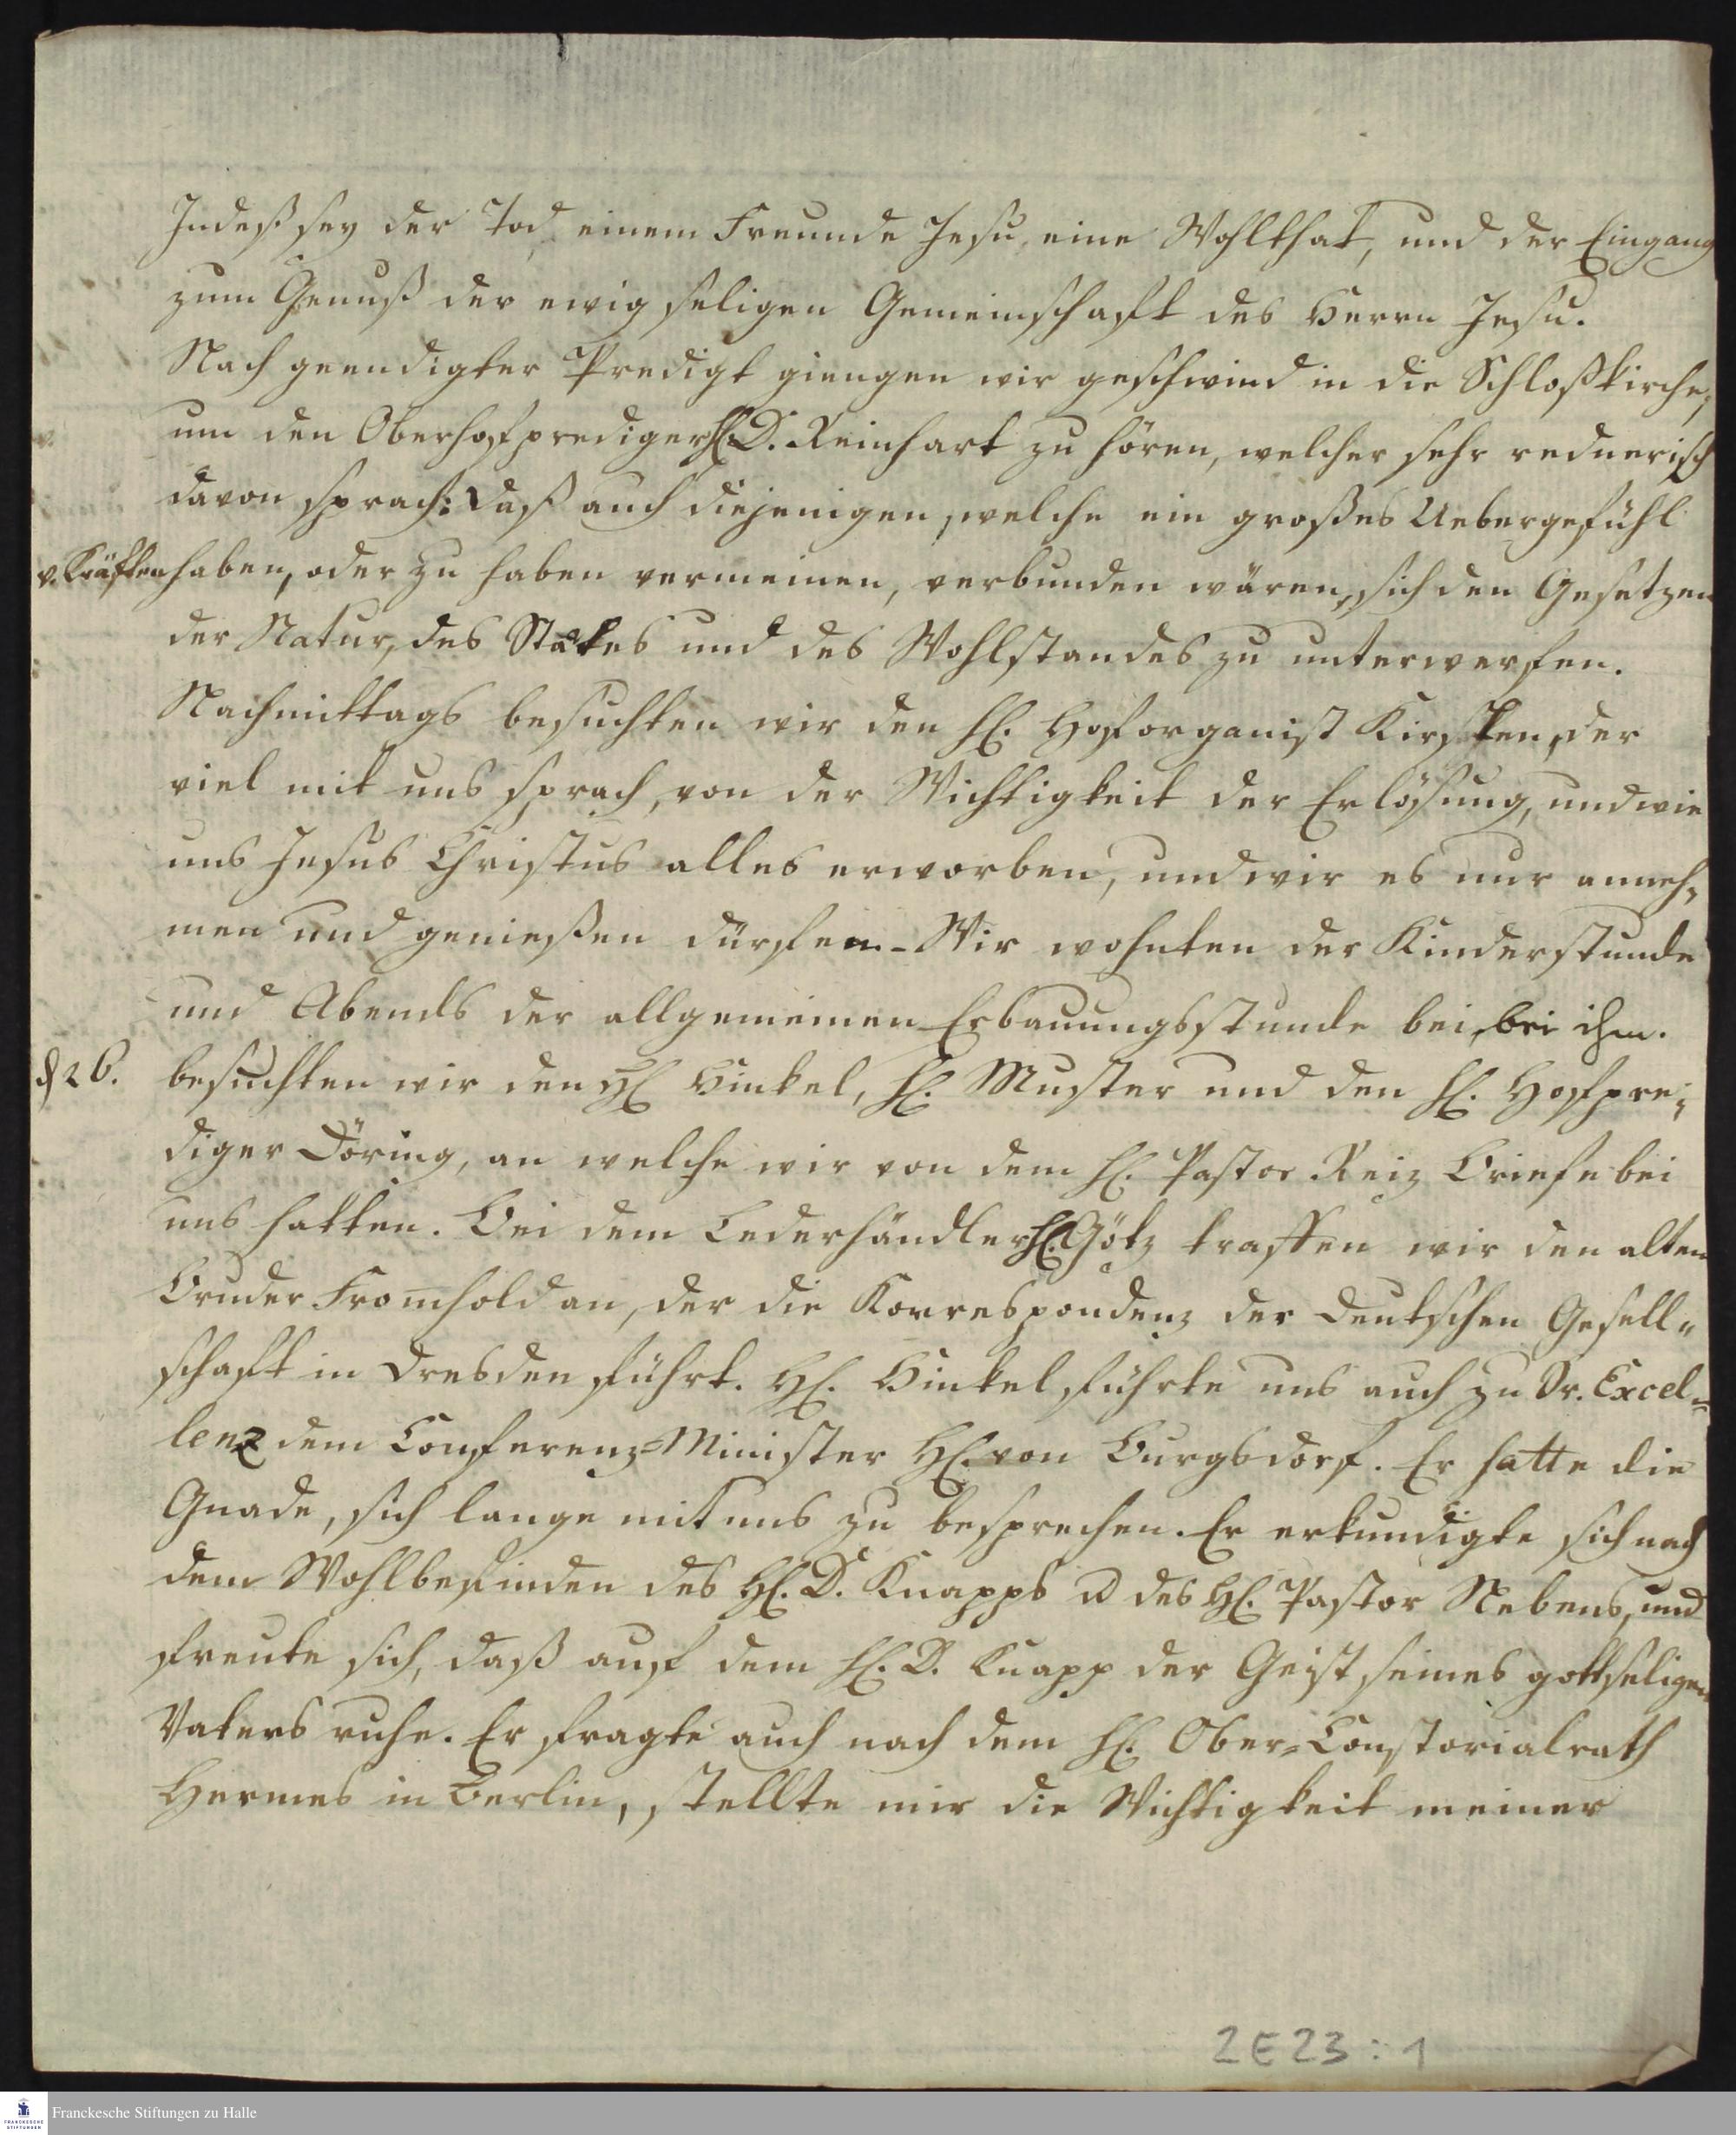 Indeß sey der Tod einem Freunde Jesu, eine Wohlthat, und der Eingang
zum Genuß der ewig seligen Gemeinschaft des Herrn Jesu.
Nach geendigter Predigt giengen wir geschwind in die Schloßkirche,
um den Oberhofprediger H. D. Reinhart zu hören, welcher sehr rednerisch
davon sprach: daß auch diejenigen, welche ein großes Uebergefühl
v. Kräften haben, oder zu haben vermeinen, verbunden wären, sich den Gesetzen
der Natur, des Staates und des Wohlstandes zu unterwerfen.
Nachmittags besuchten wir den H. Hoforganist Kirsten, der
viel mit uns sprach, von der Wichtigkeit der Erlösung, und wie
uns Jesus Christus alles erworben, und wir es nur anneh,
men und genießen dürfen. - Wir wohnten der Kinderstunde
und Abends der allgemeinen Erbauungsstunde bei, bei ihm.
d 26. besuchten wir den H Hinkel, H. Muster und den H. Hofpre;
diger Döring, an welche wir von dem H. Pastor Reiz Briefe bei
uns hatten. Bei dem Lederhändler H. Götz traffen wir den alten
Bruder Fromhold an, der die Korrespondenz der deutschen Gesell"
schaft in Dresden führt. H. Hinkel führte uns auch zu Sr. Excel=
lenz dem Conferenz=Minister H. von Burgsdorf. Er hatte die
Gnade, sich lange mit uns zu besprechen. Er erkundigte sich nach
dem Wohlbefinden des H. D. Knapps u des H. Pastor Nebens, und
freute sich, daß auf dem H. D. Knapp der Geist seines gottseligen
Vaters ruhe. Er fragte auch nach dem H. Ober=Constorialrath
Hermes in Berlin, stellte mir die Wichtigkeit meiner
2E23:1
Franckesche Stiftungen zu Halle
FRANCKESCHE
STIFTUNGEN